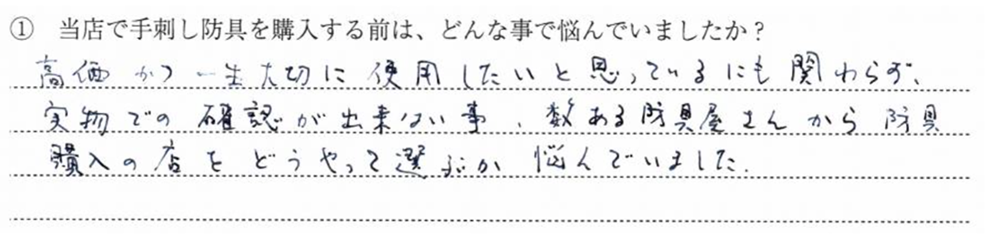 ① 当店で手刺し防具を購入する前は、どんな事で悩んでいましたか？
高価かつ一生大切に使用したいと思っているにも関わらず、
実物での確認が出来ない事、数ある防具屋さんから防具
購入の店をどうやって選ぶか悩んでいました.